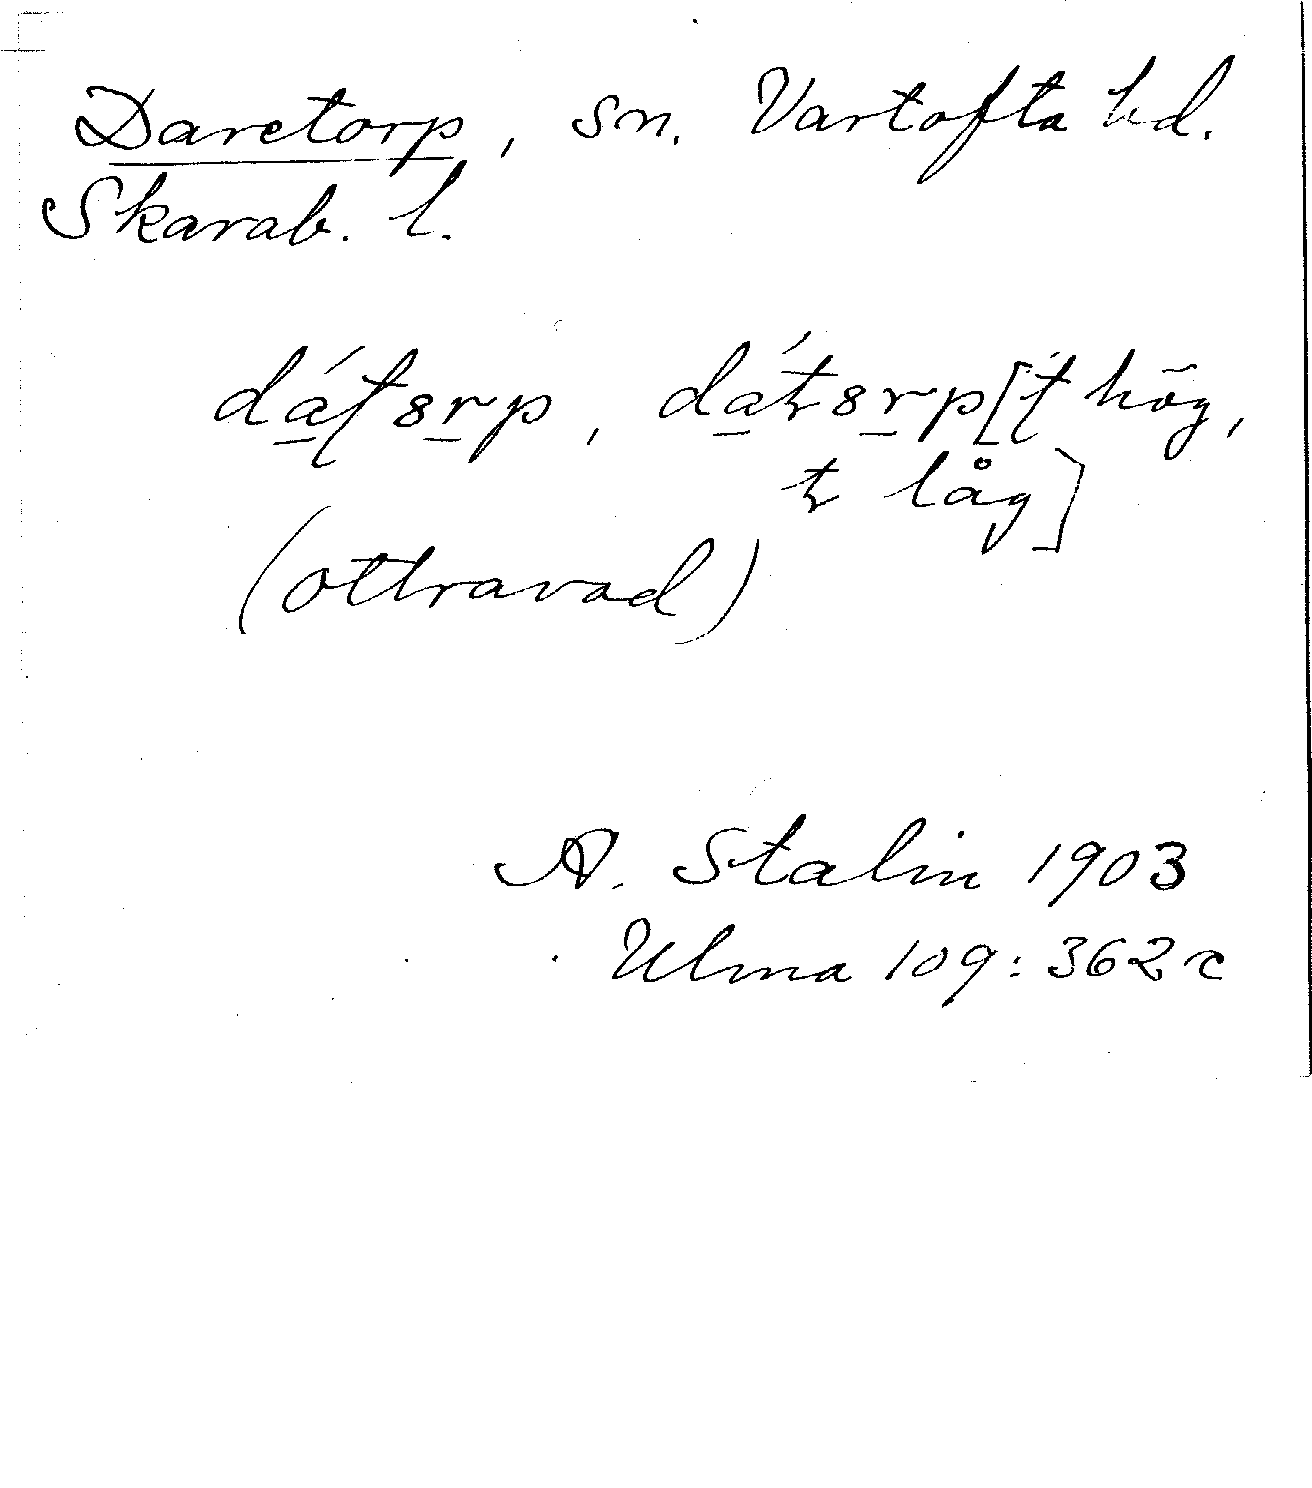 Daretorp, sn. Vartofta hd.
Skarab. l.
dáʈsrp, dátsrp [ʈ hög,
t låg]
(ottravad)
A. Stalin 1903
Ulma 109: 362 c